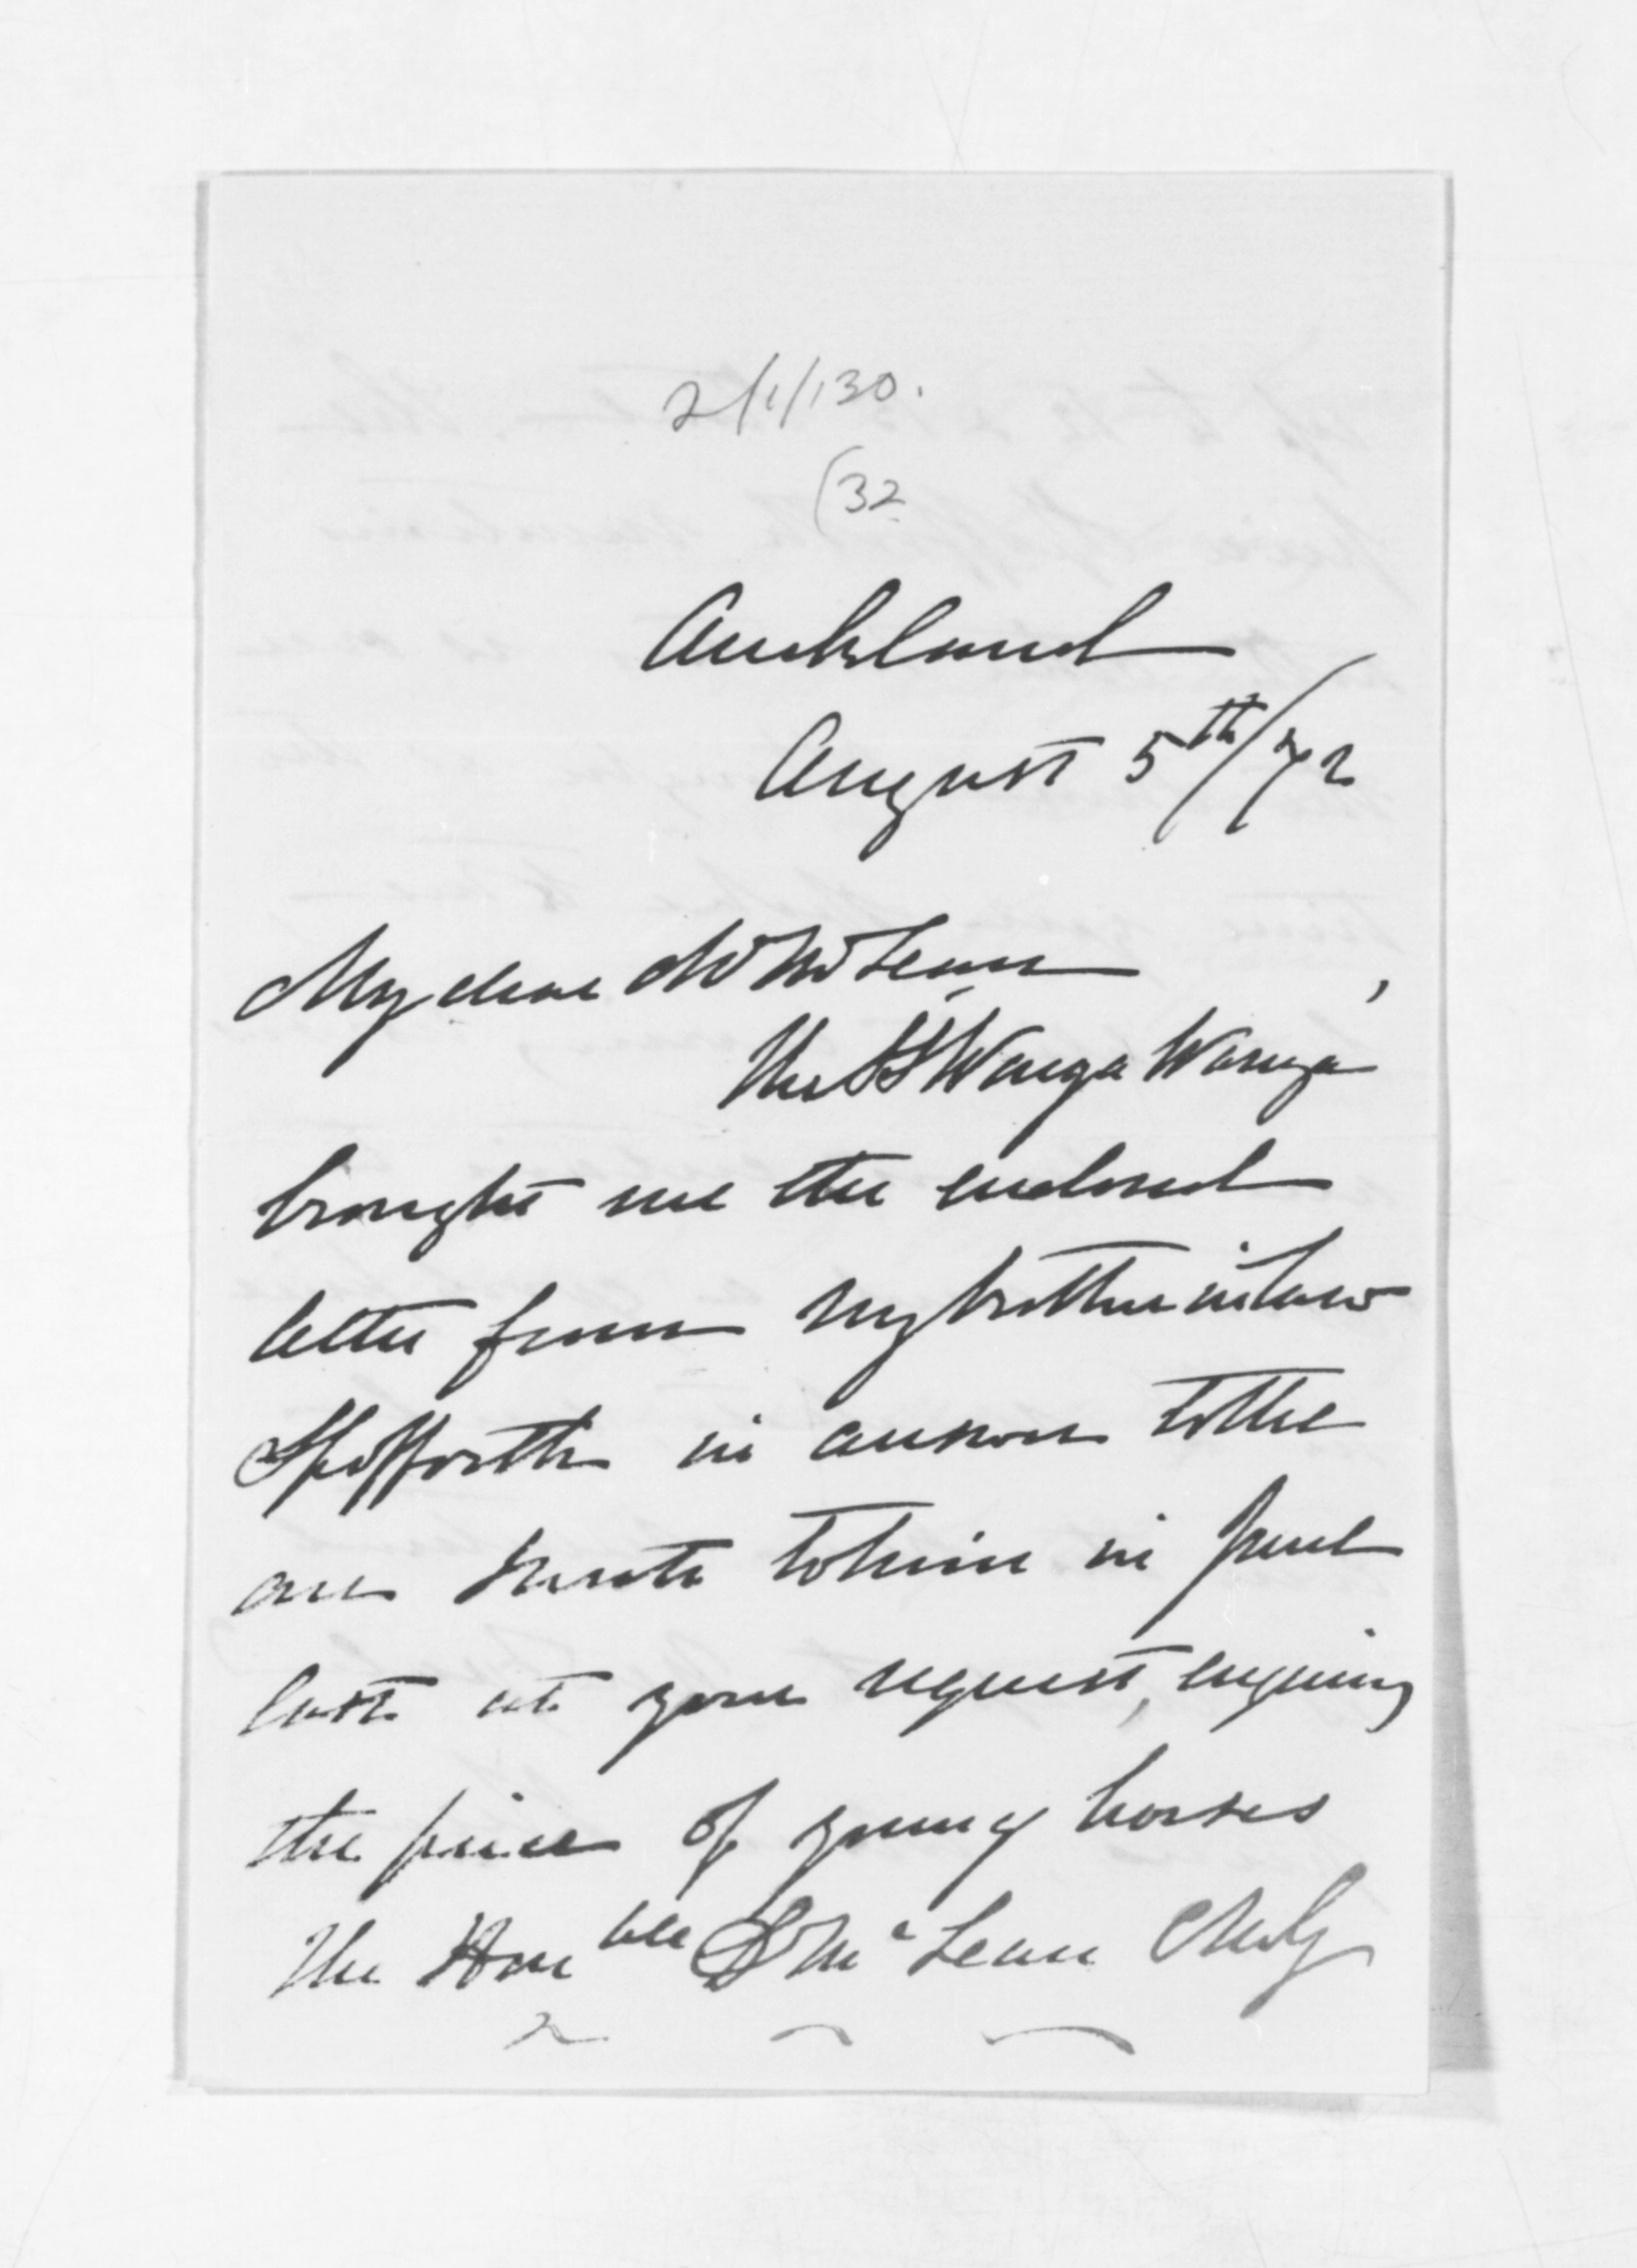 2/1/130.
(32
Auckland
August 5th/72
My dear Mr McLean,
The SS Wonga Wonga
brought me the enclosed
letter from my brother in law
Spofforth in answer to the
one I wrote to him in June
last at your request, enquiring
the price of young horses
The Honble D McLean